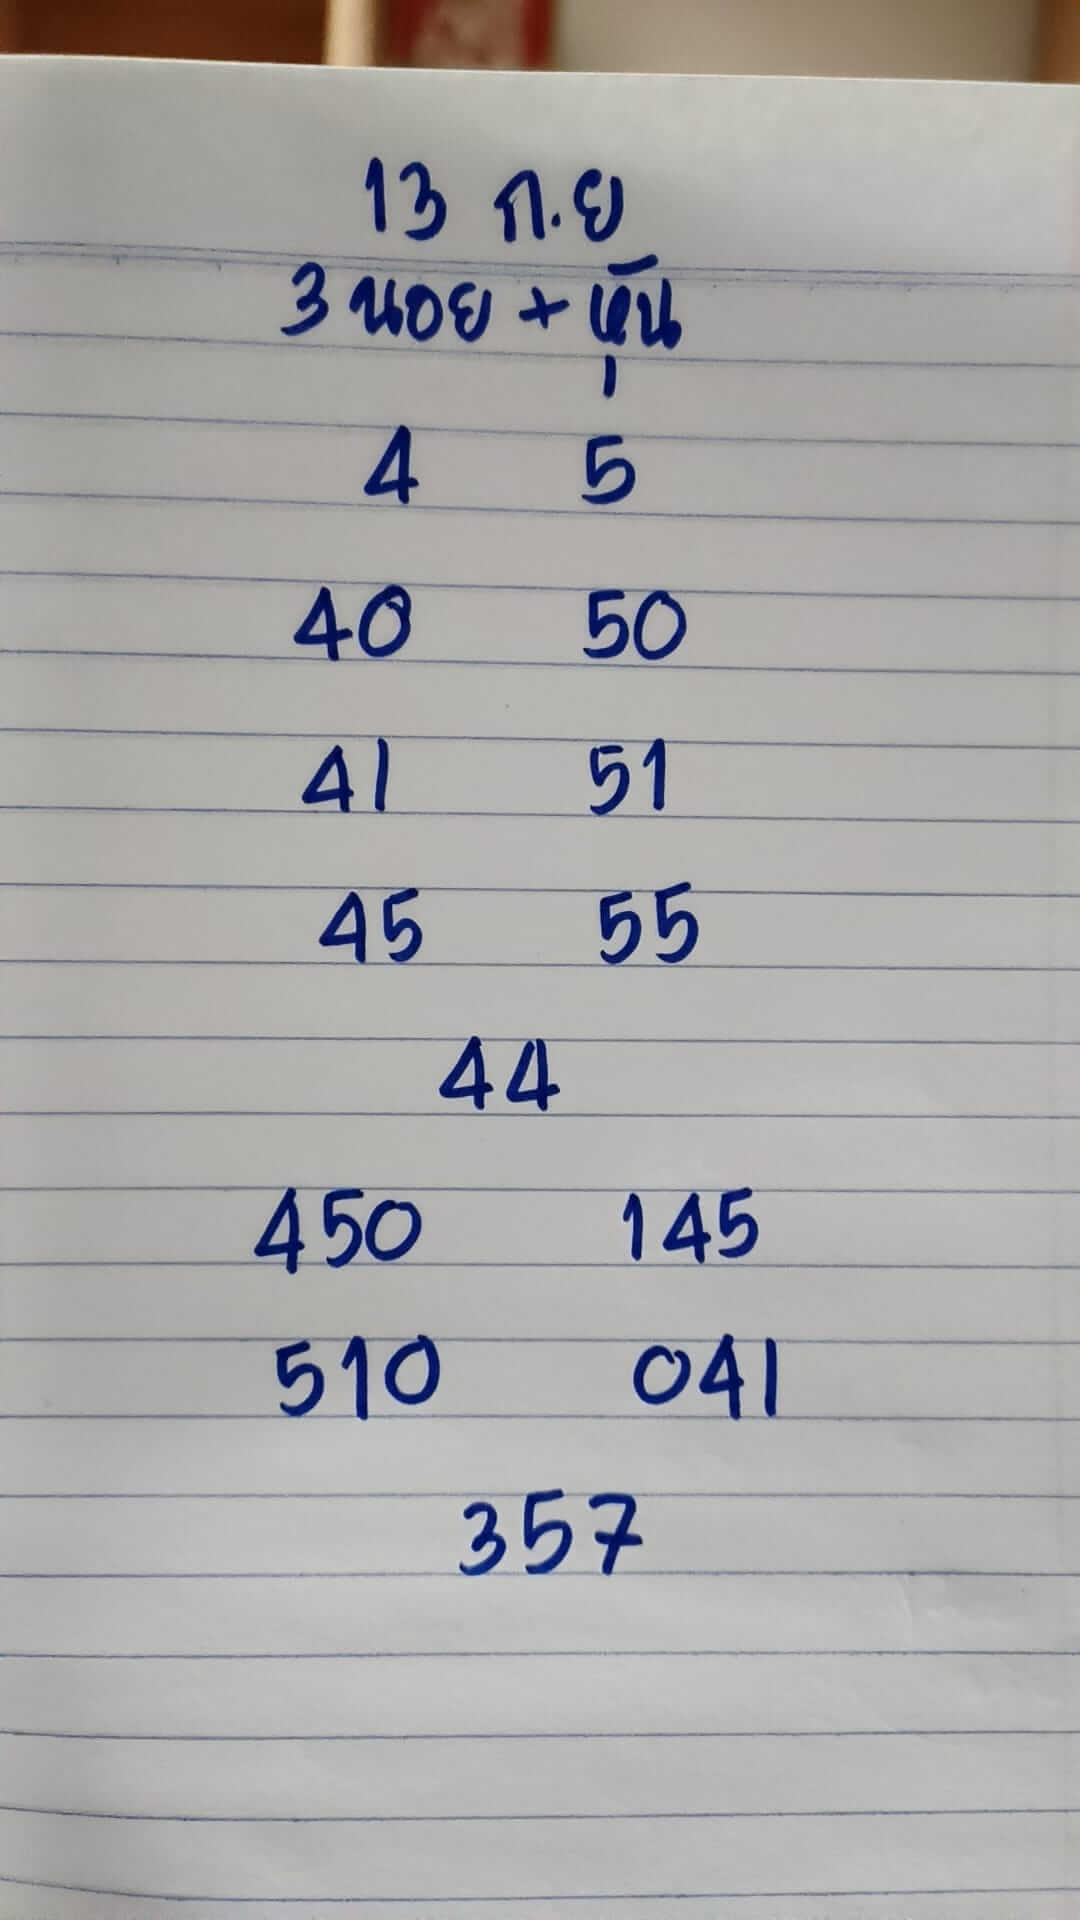 13 ก.ย
3 นอย + หุ้น
4 5
40 50
41 51
45 55
44
450 145
510 041
357